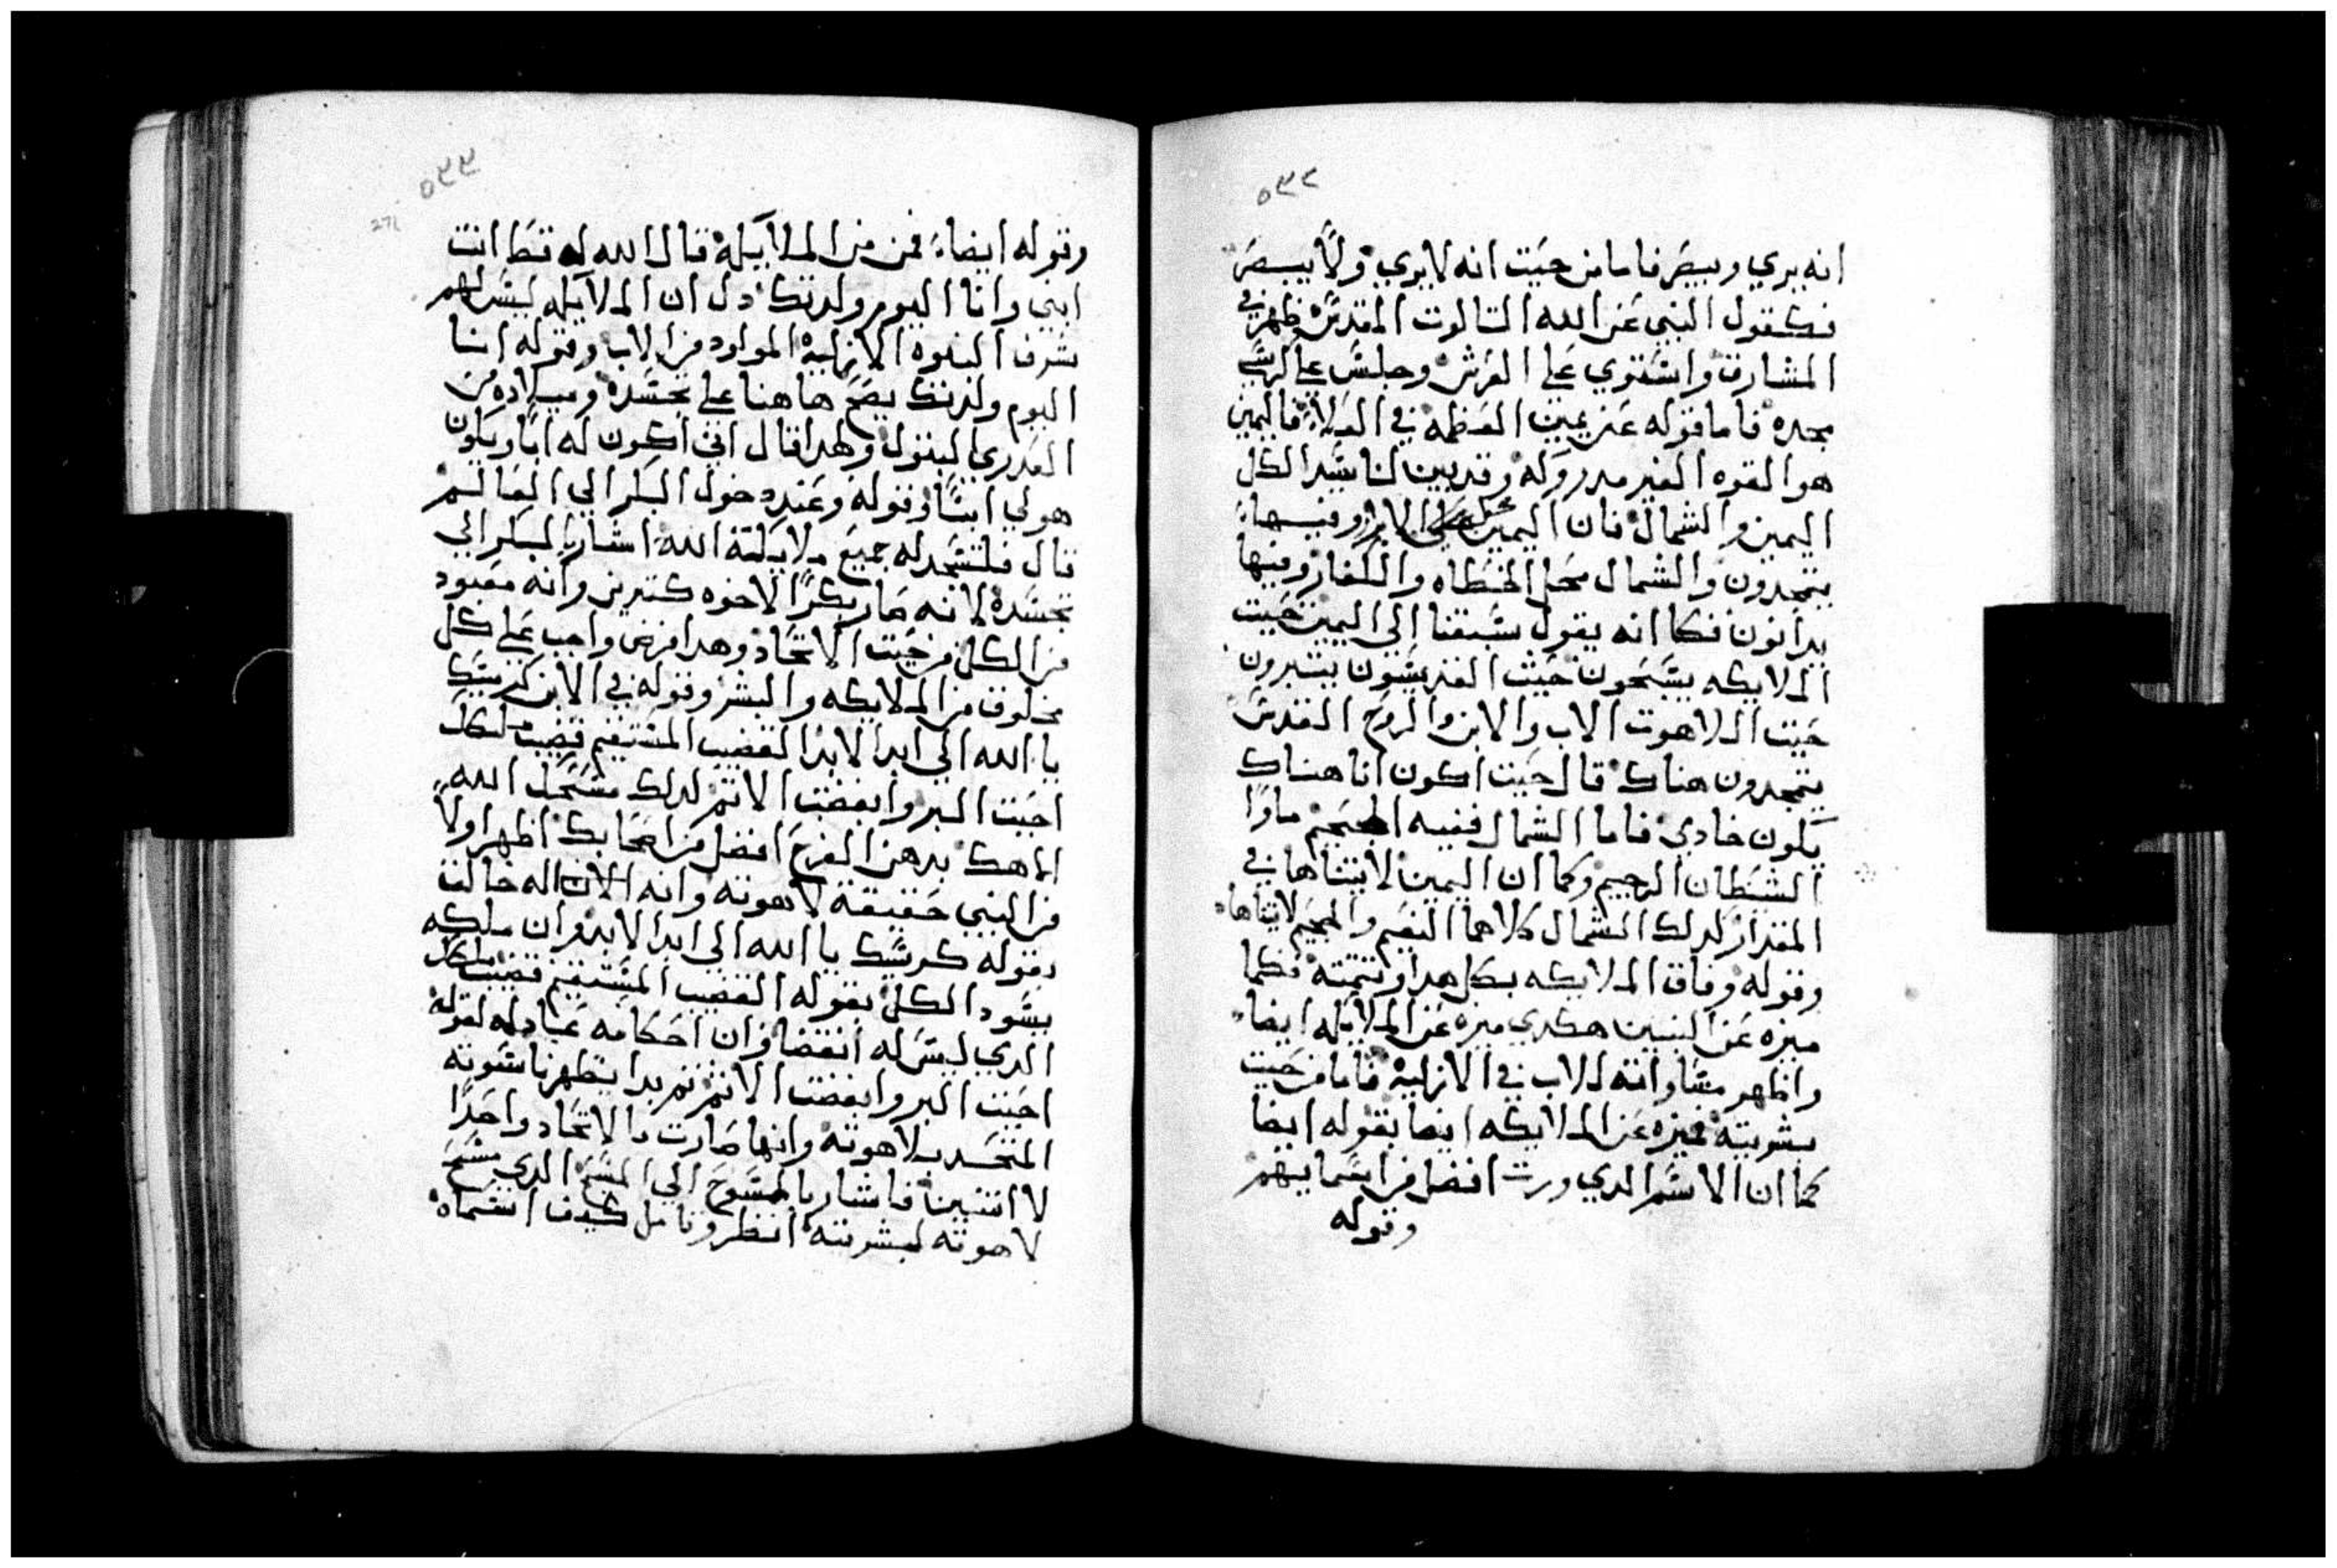 ٥٣٢
انه يري ويبصر فاما من حيت انه لا يري ولا يبصر
فكقول النبي عن الله التالوت المقدس وظهر في
المشارق واستوي علي العرش وجلس علي كرسي
مجده فاما قوله عن يمين العظمه في العلاء فاليمين
هو القوه الغير مدروكه وقد بين لنا سيد الكل
اليمين والشمال فان اليمين محل الابرار وفيها
يتمجدون والشمال محل الخطاه والكفار وفيها
يدانون فكما انه يقول سبقنا الي اليمين حيت
الملايكه يسبحون حيث القديسون يبشرون
حيت اللاهوت الاب والابن والروح القدس
يتمجدون هناك قال حيت اكون انا هناك
يكون خادمي فاما الشمال ففيه الجحيم ماوا
الشيطان الرجيم وكما ان اليمين لا يتناها في
المقدار كدلك الشمال كلاهما النعيم والجحيم لا يتناها
وقوله وفاق الملايكه بكل هدا وتتمته فكما
ميزه عن النبيين هكدي ميزه عن الملايكه ايضا
واظهر مساواته للاب في الازلية فاما من حيت
بشريته فميزه عن الملايكه ايضا بقوله ايضا
كما ان الاسم الدي ورت افضل من اسمايهم
وقوله
٥٣٣
271
وقوله ايضا فمن من الملايكة قال الله له قط انت
ابني وانا اليوم ولدتك دل ان الملايكه ليس لهم
شرف البنوه الازلية المولود من الاب وقوله انا
اليوم ولدتك يصح هاهنا علي تجسده وميلاده من
العدري البتول وهدا قال اني اكون له ابا ويكون
هو لي ابنا وقوله وعند دخول البكر الي العالم
قال فلتسجد له جميع ملايكة الله اشار بالبكر الي
تجسده لانه صار بكرا لاخوه كتيرين وانه معبود
من الكل من حيت الاتحاد وهدا فرض واجب علي كل
مخلوق من الملايكه والبشر وقوله في الابن كرسيك
يا الله الي ابد الابد القضيب المستقيم قضيب ملكك
احببت البر وابغضت الاتم لدلك مسحك الله
الاهك بدهن الفرح افضل من اصحابك اظهر اولا
من النبي حقيقة لاهوته وانه الان اله خالق
بقوله كرسيك يا الله الي ابد الابد وان ملكه
يسود الكل بقوله القضيب المستقيم قضيب ملكك
الدي ليس له انقضا وان احكامه عادله لقوله
احببت البر وابغضت الاتم تم بدا يظهر ناسوته
المتحد بلاهوته وانها صارت بالاتحاد واحدا
لا اتنين فاشار بالمسوح الي المسح الدي مسح
لاهوته لبشريته انظر وتامل كيف اسماه